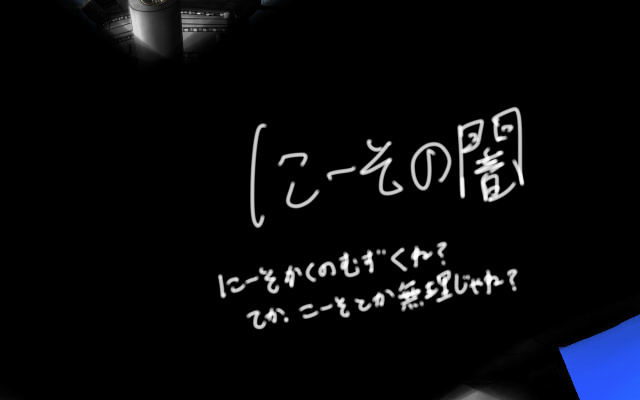 にーその闇
にーそかくのむずくね?
てか、こーそとか無理じゃね?